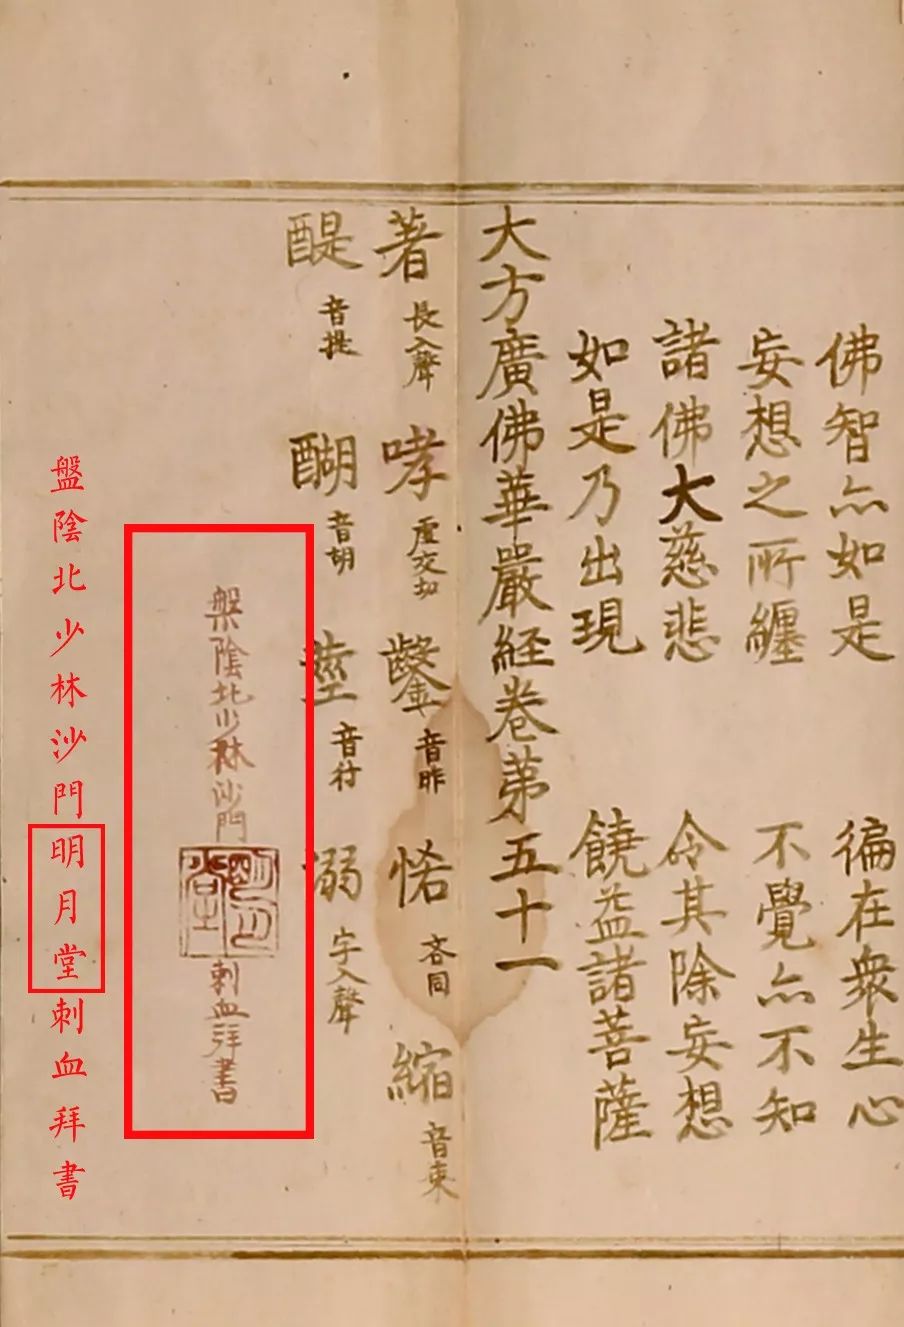 佛智亦如是　徧在衆生心
妄想之所纏　不覺亦不知
諸佛大慈悲　令其除妄想
如是乃出現　饒益諸菩薩
大方廣佛華嚴経卷苐五十一
著 長入聲 哮 虛交切 鑿 音昨 悋 吝同 縮 音束
醍 音提 醐 音胡 音行 溺 入聲
槃陰北少林沙門明月堂刺血拜書
盤陰北少林沙門明月堂刺血拜書